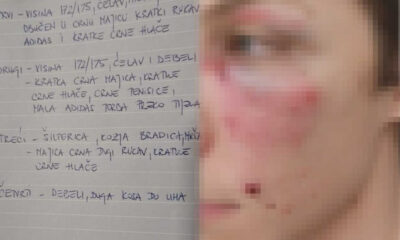 PRVI - VISINA 172/175, ĆELAV,
OBUČEN U CRNU MAJICU KRATKI RUKAV
ADIDAS I KRATKE CRNE HLAČE
DRUGI - VISINA 172/175, ĆELAV I DEBELI
- KRATKA CRNA MAJICA, KRATKE
CRNE HLAČE, CRNE TENISICE,
MALA ADIDAS TORBA PREKO TIJELA
TREĆI - ŠILTERICA, KOZJA BRADICA,
- MAJICA CRNA DUGI RUKAV, KRATKE
CRNE HLAČE
ČETVRTI - DEBELI, DUGA KOSA DO UHA